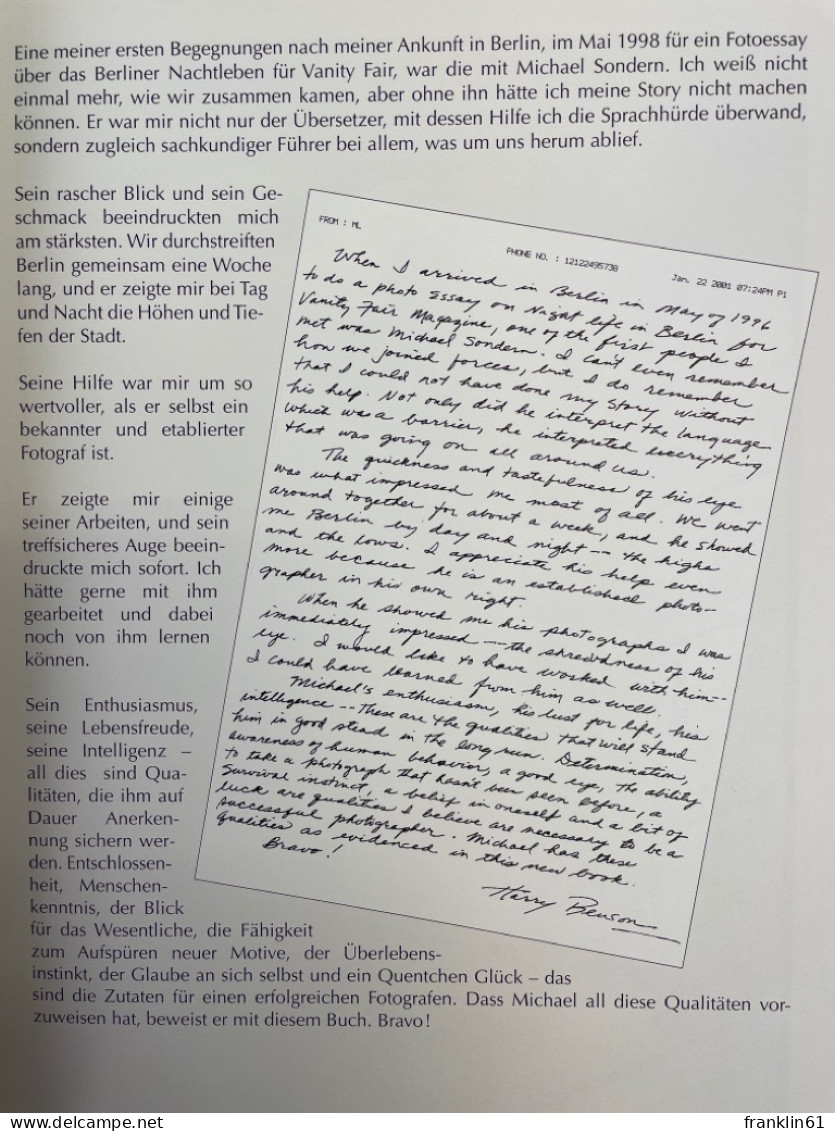 Eine meiner ersten Begegnungen nach meiner Ankunft in Berlin, im Mai 1998 für ein Fotoessay
über das Berliner Nachtleben für Vanity Fair, war die mit Michael Sondern. Ich weiß nicht
einmal mehr, wie wir zusammen kamen, aber ohne ihn hätte ich meine Story nicht machen
können. Er war mir nicht nur der Übersetzer, mit dessen Hilfe ich die Sprachhürde überwand,
sondern zugleich sachkundiger Führer bei allem, was um uns herum ablief.
Sein rascher Blick und sein Ge-
schmack beeindruckten mich
am stärksten. Wir durchstreiften
Berlin gemeinsam eine Woche
lang, und er zeigte mir bei Tag
und Nacht die Höhen und Tie-
fen der Stadt.
Seine Hilfe war mir um so
wertvoller, als er selbst ein
bekannter und etablierter
Fotograf ist.
Er zeigte mir einige
seiner Arbeiten, und sein
treffsicheres Auge beein-
druckte mich sofort. Ich
hätte gerne mit ihm
gearbeitet und dabei
noch von ihm lernen
können.
Sein Enthusiasmus,
seine Lebensfreude,
seine Intelligenz –
all dies sind Qua-
litäten, die ihm auf
Dauer Anerken-
nung sichern wer-
den. Entschlossen-
heit, Menschen-
kenntnis, der Blick
für das Wesentliche, die Fähigkeit
zum Aufspüren neuer Motive, der Überlebens-
instinkt, der Glaube an sich selbst und ein Quentchen Glück – das
sind die Zutaten für einen erfolgreichen Fotografen. Dass Michael all diese Qualitäten vor-
zuweisen hat, beweist er mit diesem Buch. Bravo!
FROM : ML
PHONE NO. : 12122495738
Jan. 22 2001 07:24PM P1
When I arrived in Berlin in May of 1996
to do a photo essay on Night life in Berlin for
Vanity Fair Magazine, one of the first people I
met was Michael Sondern. I can't even remember
how we joined forces, but I do remember
that I could not have done my story without
his help. Not only did he interpret the language
which was a barrier, he interpreted everything
that was going on all around us.
The quickness and tastefulness of his eye
was what impressed me most of all. We went
around together for about a week, and he showed
me Berlin by day and night -- the highs
and the lows. I appreciate his help even
more because he is an established photo-
grapher in his own right.
When he showed me his photographs I was
immediately impressed -- the shrewdness of his
eye. I would like to have worked with him --
I could have learned from him as well.
Michael's enthusiasm, his lust for life, his
intelligence -- These are the qualities that will stand
him in good stead in the long run. Determination,
awareness of human behavior, a good eye, the ability
to take a photograph that hasn't been seen before, a
survival instinct, a belief in oneself and a bit of
luck are qualities I believe are necessary to be a
successful photographer. Michael has these
qualities as evidenced in this new book.
Bravo!
Harry Benson
www.delcampe.net
franklin61